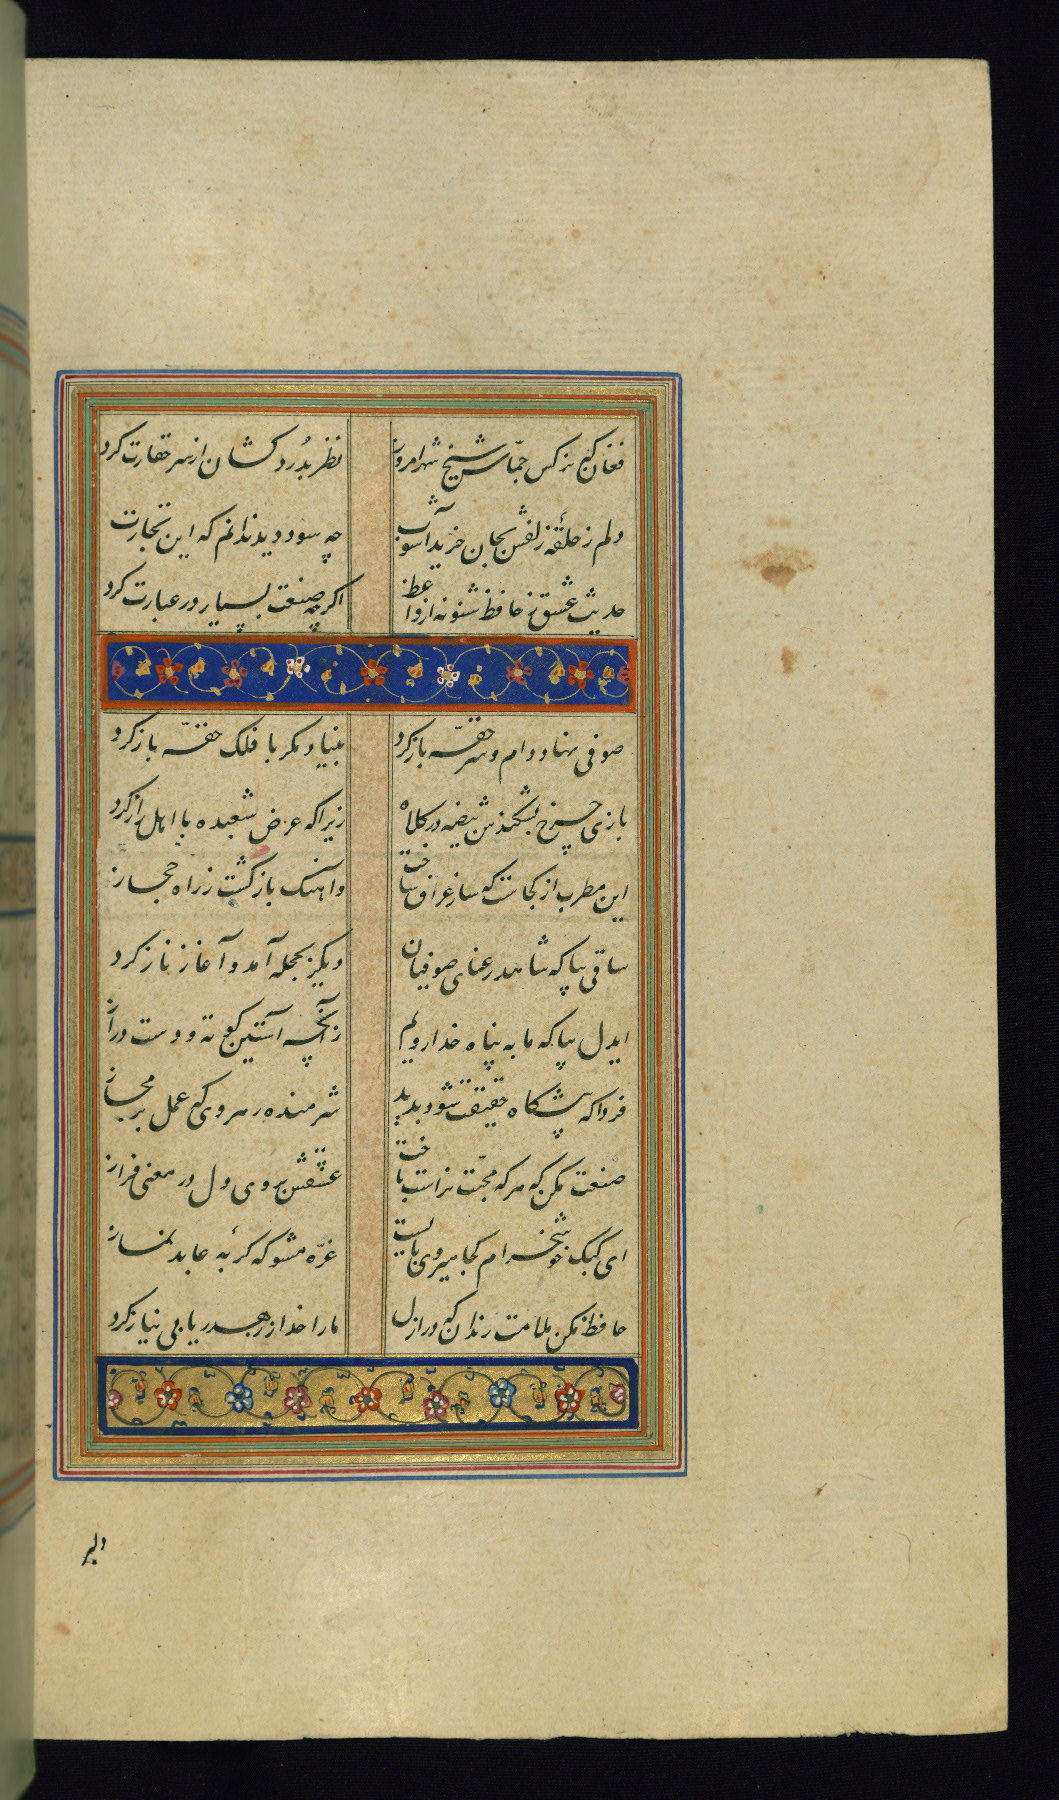 فغان که نرکس جمّاش شیخ شهر امروز نظر بدُردکشان از سر حقارت کرد
دلم ز حلقهٔ زلفش بجان خرید آشوب چه سود دید ندانم که این تجارت
حدیث عشق ز حافظ شنو نه از واعظ اکرچه صنعت بسیار در عبارت کرد
صوفی نهاد دام و سر حقّه باز کرد بنیاد مکر با فلک حقّه باز کرد
بازی چرخ بشکندش بیضه در کلاه زیرا که عرض شعبده با اهل راز کرد
این مطرب از کجاست که ساز عراق ساخت و آهنک بازکشت ز راه حجاز
ساقی بیا که شاهد رعنای صوفیان دیکر بجلوه آمد و آغاز ناز کرد
ایدل بیا که ما به پناه خدا رویم زآنچه آستین کوته و دست دراز
فردا که پیشکاه حقیقت شود پدید شرمنده رهروی که عمل بر مجاز
صنعت مکن که هر که محبّت نه راست باخت عشقش بروی دل در معنی فراز
ای کبک خوشخرام کجا میروی بایست غرّه مشو که کربهٔ عابد نماز
حافظ مکن ملامت رندان که در ازل ما را خدا ز زهد ریا بی نیاز کرد
دلبر